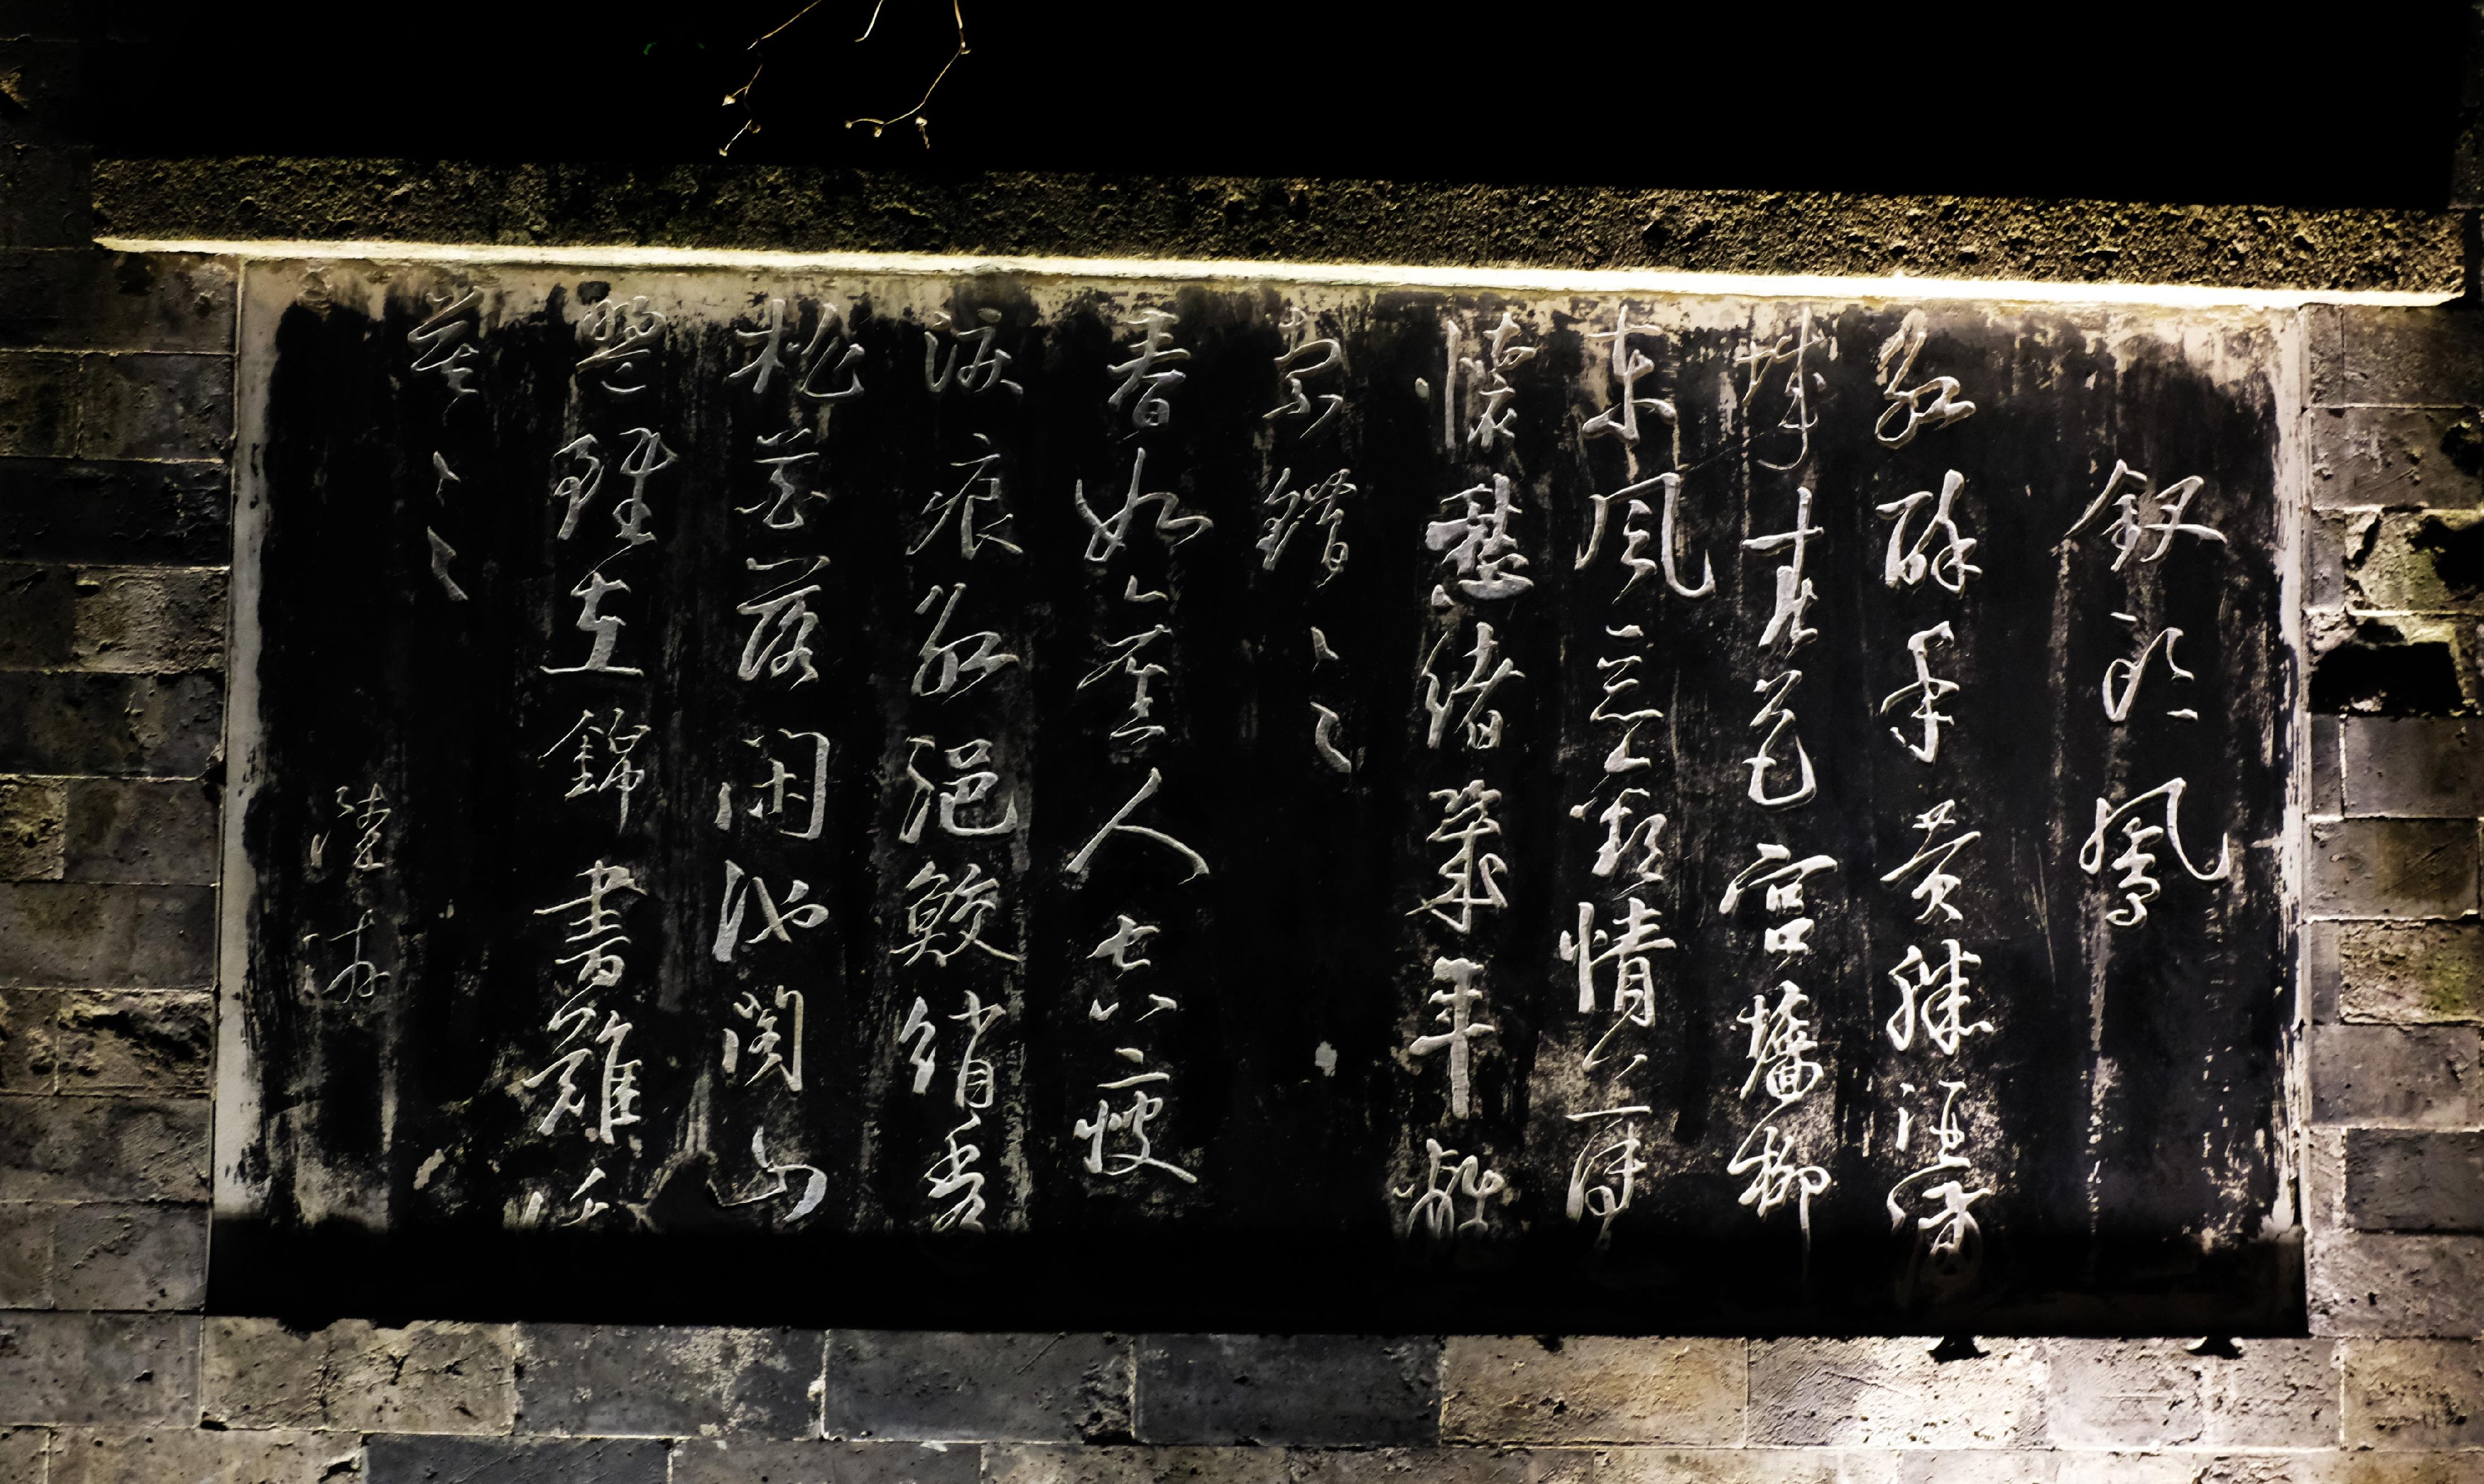 釵頭鳳
紅酥手黃縢酒滿
城春色宮牆柳
東風惡歡情薄
懷愁緒幾年離
索錯〻〻
春如舊人空瘦
淚痕紅浥鮫綃透
桃花落閑池閣山
盟雖在錦書難托
莫〻〻
陸游